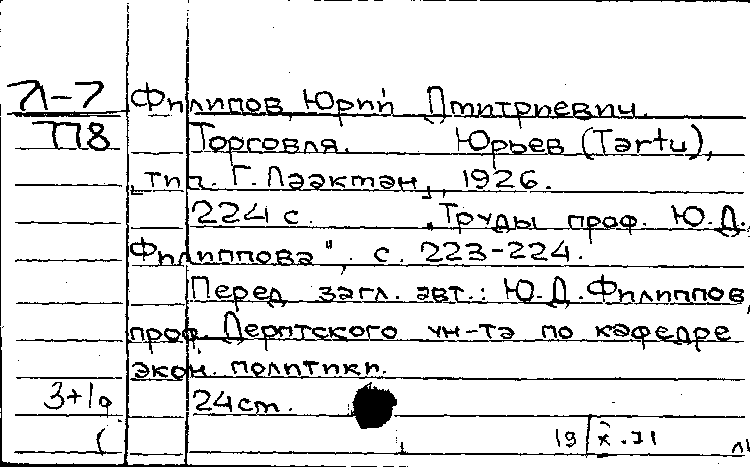 Л-7 Филипов, Юрий Дмитриевич.
778 Торговля. Юрьев (Tartu),
"тип. Г. Лаакман", 1926.
224 с. "Труды проф. Ю.Д.
Филиппова", с. 223-224.
Перед загл. авт.: Ю.Д. Филиппов,
проф. Дерптского ун-та по кафедре
экон. политики.
24cm.
19 X.71